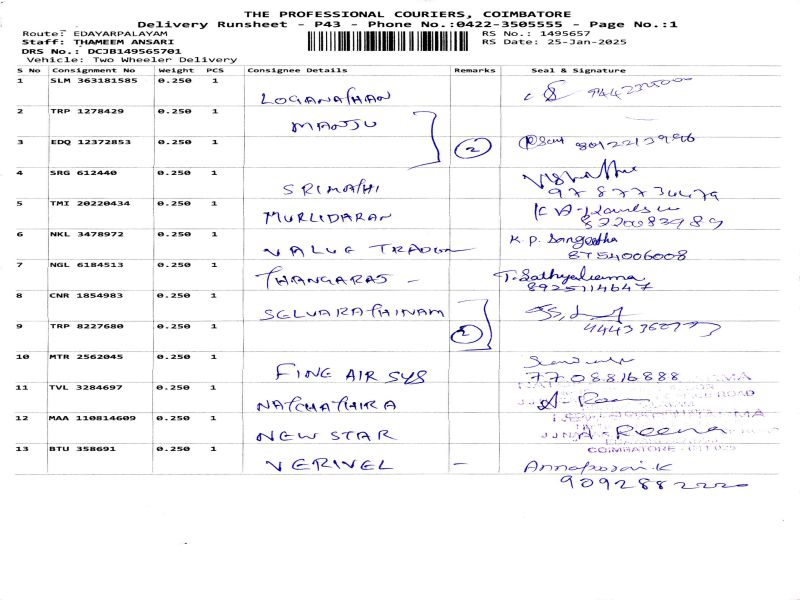 THE PROFESSIONAL COURIERS, COIMBATORE
Delivery Runsheet - P43 - Phone No.:0422-3505555 - Page No.:1
Route: EDAYARPALAYAM
RS No.: 1495657
Staff: THAMEEM ANSARI
RS Date: 25-Jan-2025
DRS No.: DCJB149565701
Vehicle: Two Wheeler Delivery
S No Consignment No Weight PCS Consignee Details Remarks Seal & Signature
1 SLM 363181585 0.250 1
LOGANATHAN
2 TRP 1278429 0.250 1
MANJU
3 EDQ 12372853 0.250 1 2 8012213996
4 SRG 612440 0.250 1
SRIMATHI 9787734479
5 TMI 20220434 0.250 1
MURLIDARAN 8220083989
6 NKL 3478972 0.250 1 K.P. Sangeetha
VALUE TRADON 8754006008
7 NGL 6184513 0.250 1
THANGARAS - 8925114647
8 CNR 1854983 0.250 1
SELVARATHINAM
9 TRP 8227680 0.250 1 2
10 MTR 2562045 0.250 1
FINE AIR SYS 7708816888
11 TVL 3284697 0.250 1
NATCHATHIRA
12 MAA 110814609 0.250 1
NEW STAR A- Reena
13 BTU 358691 0.250 1 COIMBATORE
VERIVEL - Annapoorani.K
9092882220